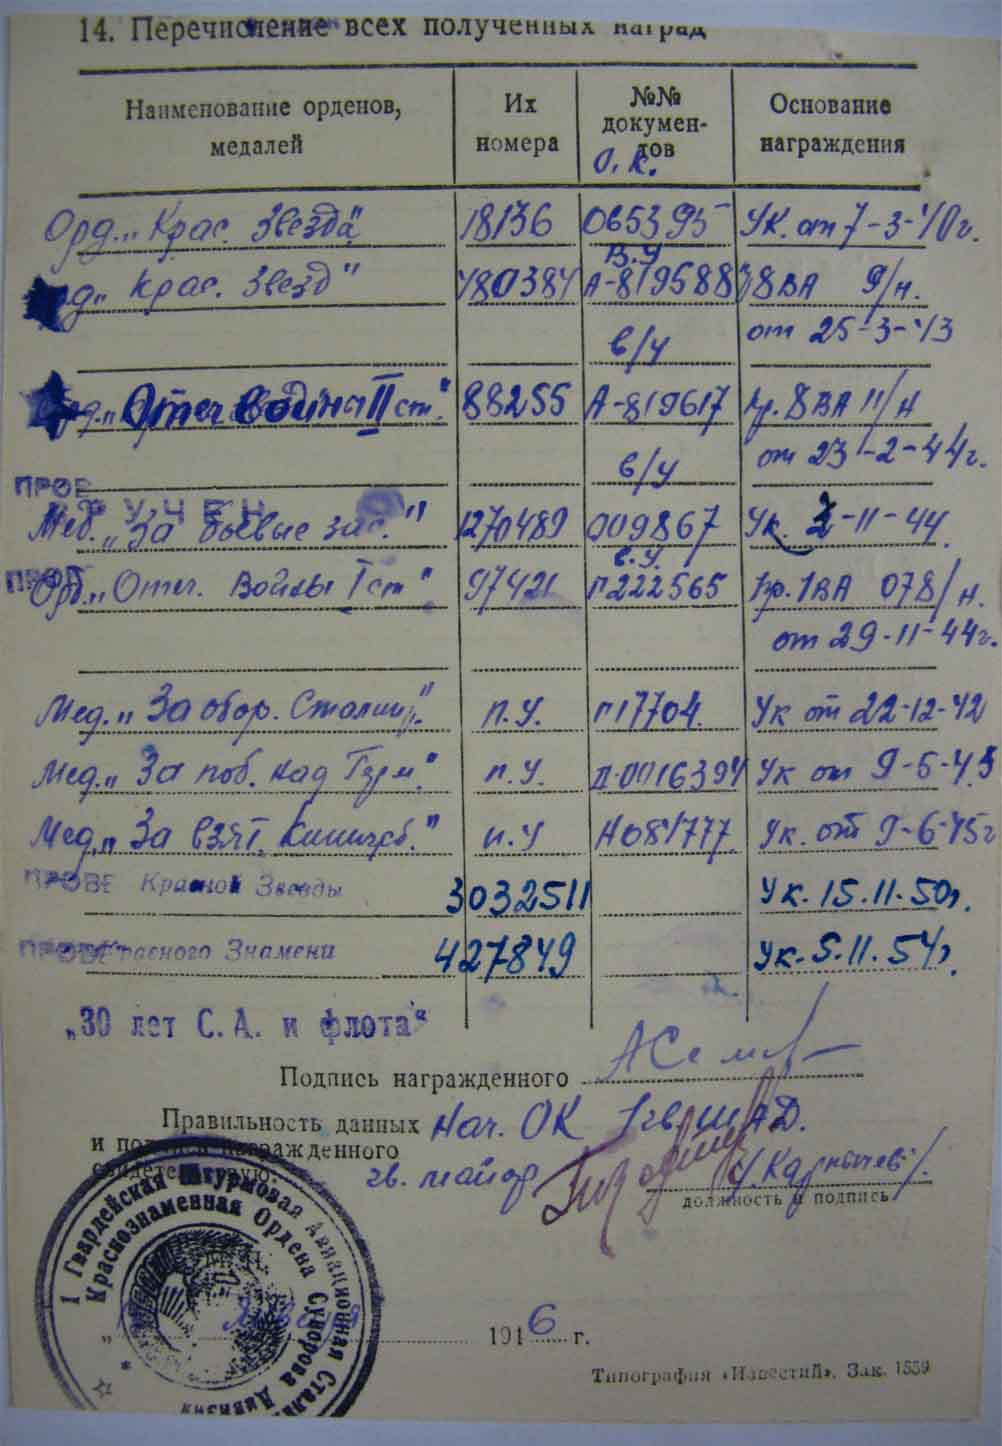 14. Перечисление всех полученных наград
Наименование орденов, медалей | Их номера | №№ документов | Основание награждения
О.К.
Орд. „Крас. Звезда" | 18136 | 065395 | Ук. от 7-3-40г.
В.У
„Крас. Звезд" | 480384 | А-819588 | 8 ВА 9/н.
от 25-3-43
в/у
„Отеч война II ст." | 88255 | А-819617 | Пр. 8 ВА 11/н
от 23-2-44г.
в/у
ПРОВ
ВРУЧЕН
Мед. „За боевые зас." | 1270489 | 009867 | Ук. 2-11-44
в.у.
Орд. „Отеч. Войны I ст" | 97421 | П222565 | Пр. 1ВА 078/н.
от 29-11-44г.
Мед. „За обор. Сталингр." | п.у. | П17704. | Ук от 22-12-42
Мед. „За поб. над Герм." | п.у. | Д-0016394 | Ук от 9-5-45
Мед. „За взят. Кинигсб." | п.у | Н081777. | Ук. от 9-6-45г
ПРОВЕ Красной Звезды | 3032511 | Ук. 15.11.50г.
ПРОВЕ Красного Знамени | 427849 | Ук. 5.11.54г.
„30 лет С. А. и флота"
Подпись награжденного
Правильность данных Нач. ОК 1гвшАД.
и подпись награжденного
свидетельствую:
гв. майор /Карнычев/.
должность и подпись
1 Гвардейская Штурмовая Авиационная
Краснознаменная Ордена Суворова Дивизия
1946 г.
Типография «Известий». Зак. 1559